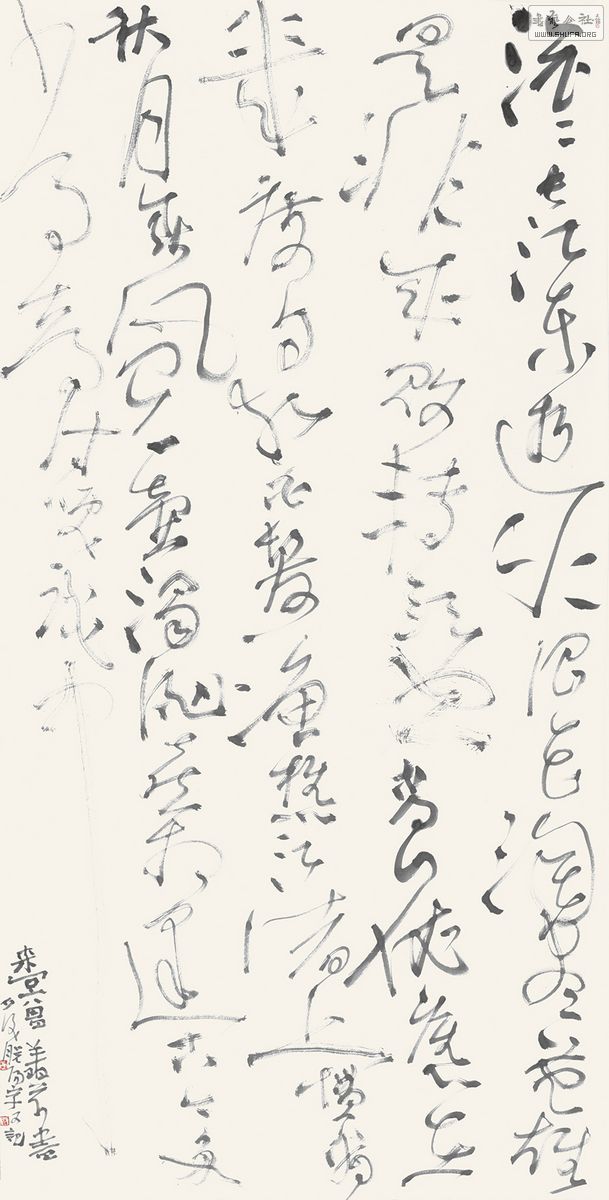 滚〻长江东逝水浪花淘尽英雄
是非成败转头空青山依旧在
幾度夕阳红白髮渔樵江渚上惯看
秋月春风一壶浊酒喜相逢古今多
少事都付笑谈中
WWW.SHUFA.ORG